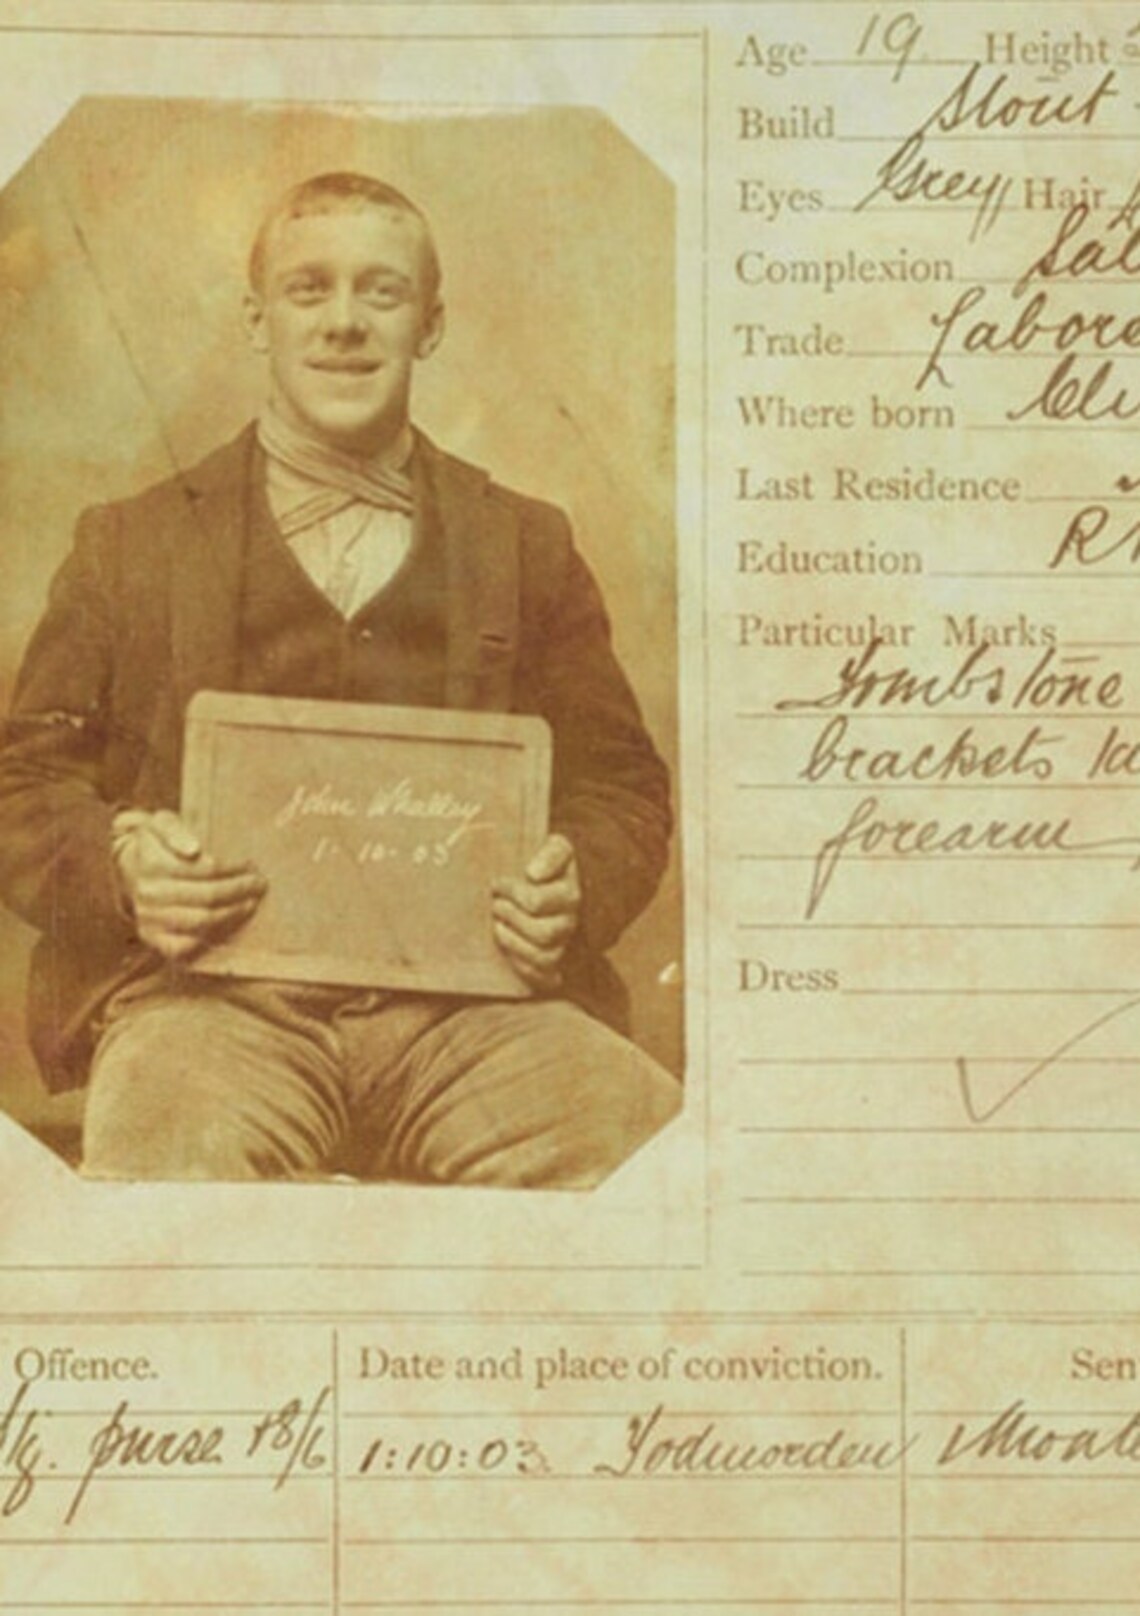 Age 19. Height
Build Stout
Eyes Grey Hair
Complexion Sal
Trade Labore
Where born Cli
Last Residence
Education R
Particular Marks
Tombstone
brackets
forearm
John Whalley
1-10-03
Dress
Offence. Date and place of conviction. Sen
purse +8/6 1:10:03 Todmorden 1 Month